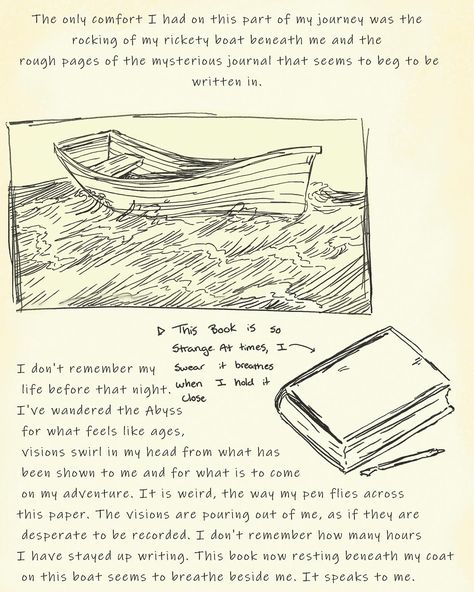 The only comfort I had on this part of my journey was the
rocking of my rickety boat beneath me and the
rough pages of the mysterious journal that seems to beg to be
written in.
This Book is so
Strange. At times, I
Swear it breathes
when I hold it
close
I don't remember my
life before that night.
I've wandered the Abyss
for what feels like ages,
visions swirl in my head from what has
been shown to me and for what is to come
on my adventure. It is weird, the way my pen flies across
this paper. The visions are pouring out of me, as if they are
desperate to be recorded. I don't remember how many hours
I have stayed up writing. This book now resting beneath my coat
on this boat seems to breathe beside me. It speaks to me.